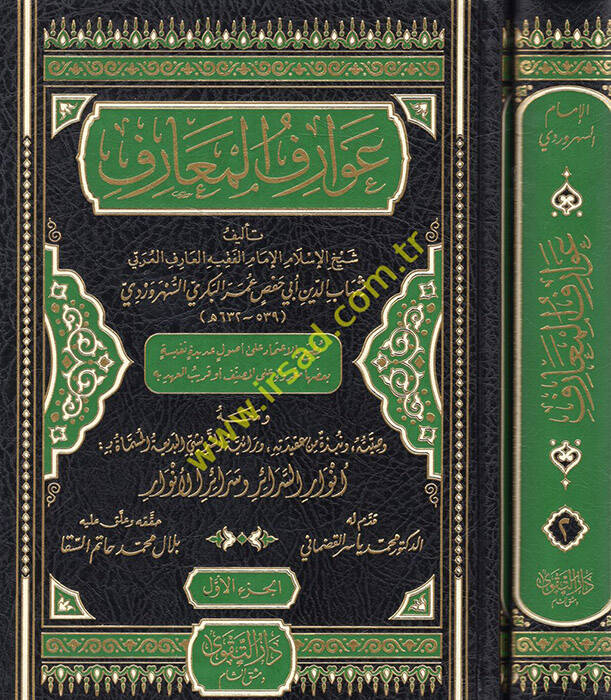 عوارف المعارف
تأليف
شيخ الإسلام الإمام الفقيه العارف المربي
شهاب الدين أبي حفص عمر البكري السهروردي
(٥٣٩ - ٦٣٢هـ)
الاعتماد على أصول عديدة نفيسة
بعضها على المصنف أو قريب العهد به
وصيته، ونبذة من عقيدته، ورائية الشريشي البديعة المسماة بـ:
أنوار السرائر وسرائر الأنوار
قدم له
الدكتور محمد ياسر القضماني
حققه وعلق عليه
بلال محمد حاتم السقا
الجزء الأول
دار التقوى
دمشق الشام
www.irsad.com.tr
الإمام
السهروردي
عوارف المعارف
٢
دار التقوى
دمشق الشام